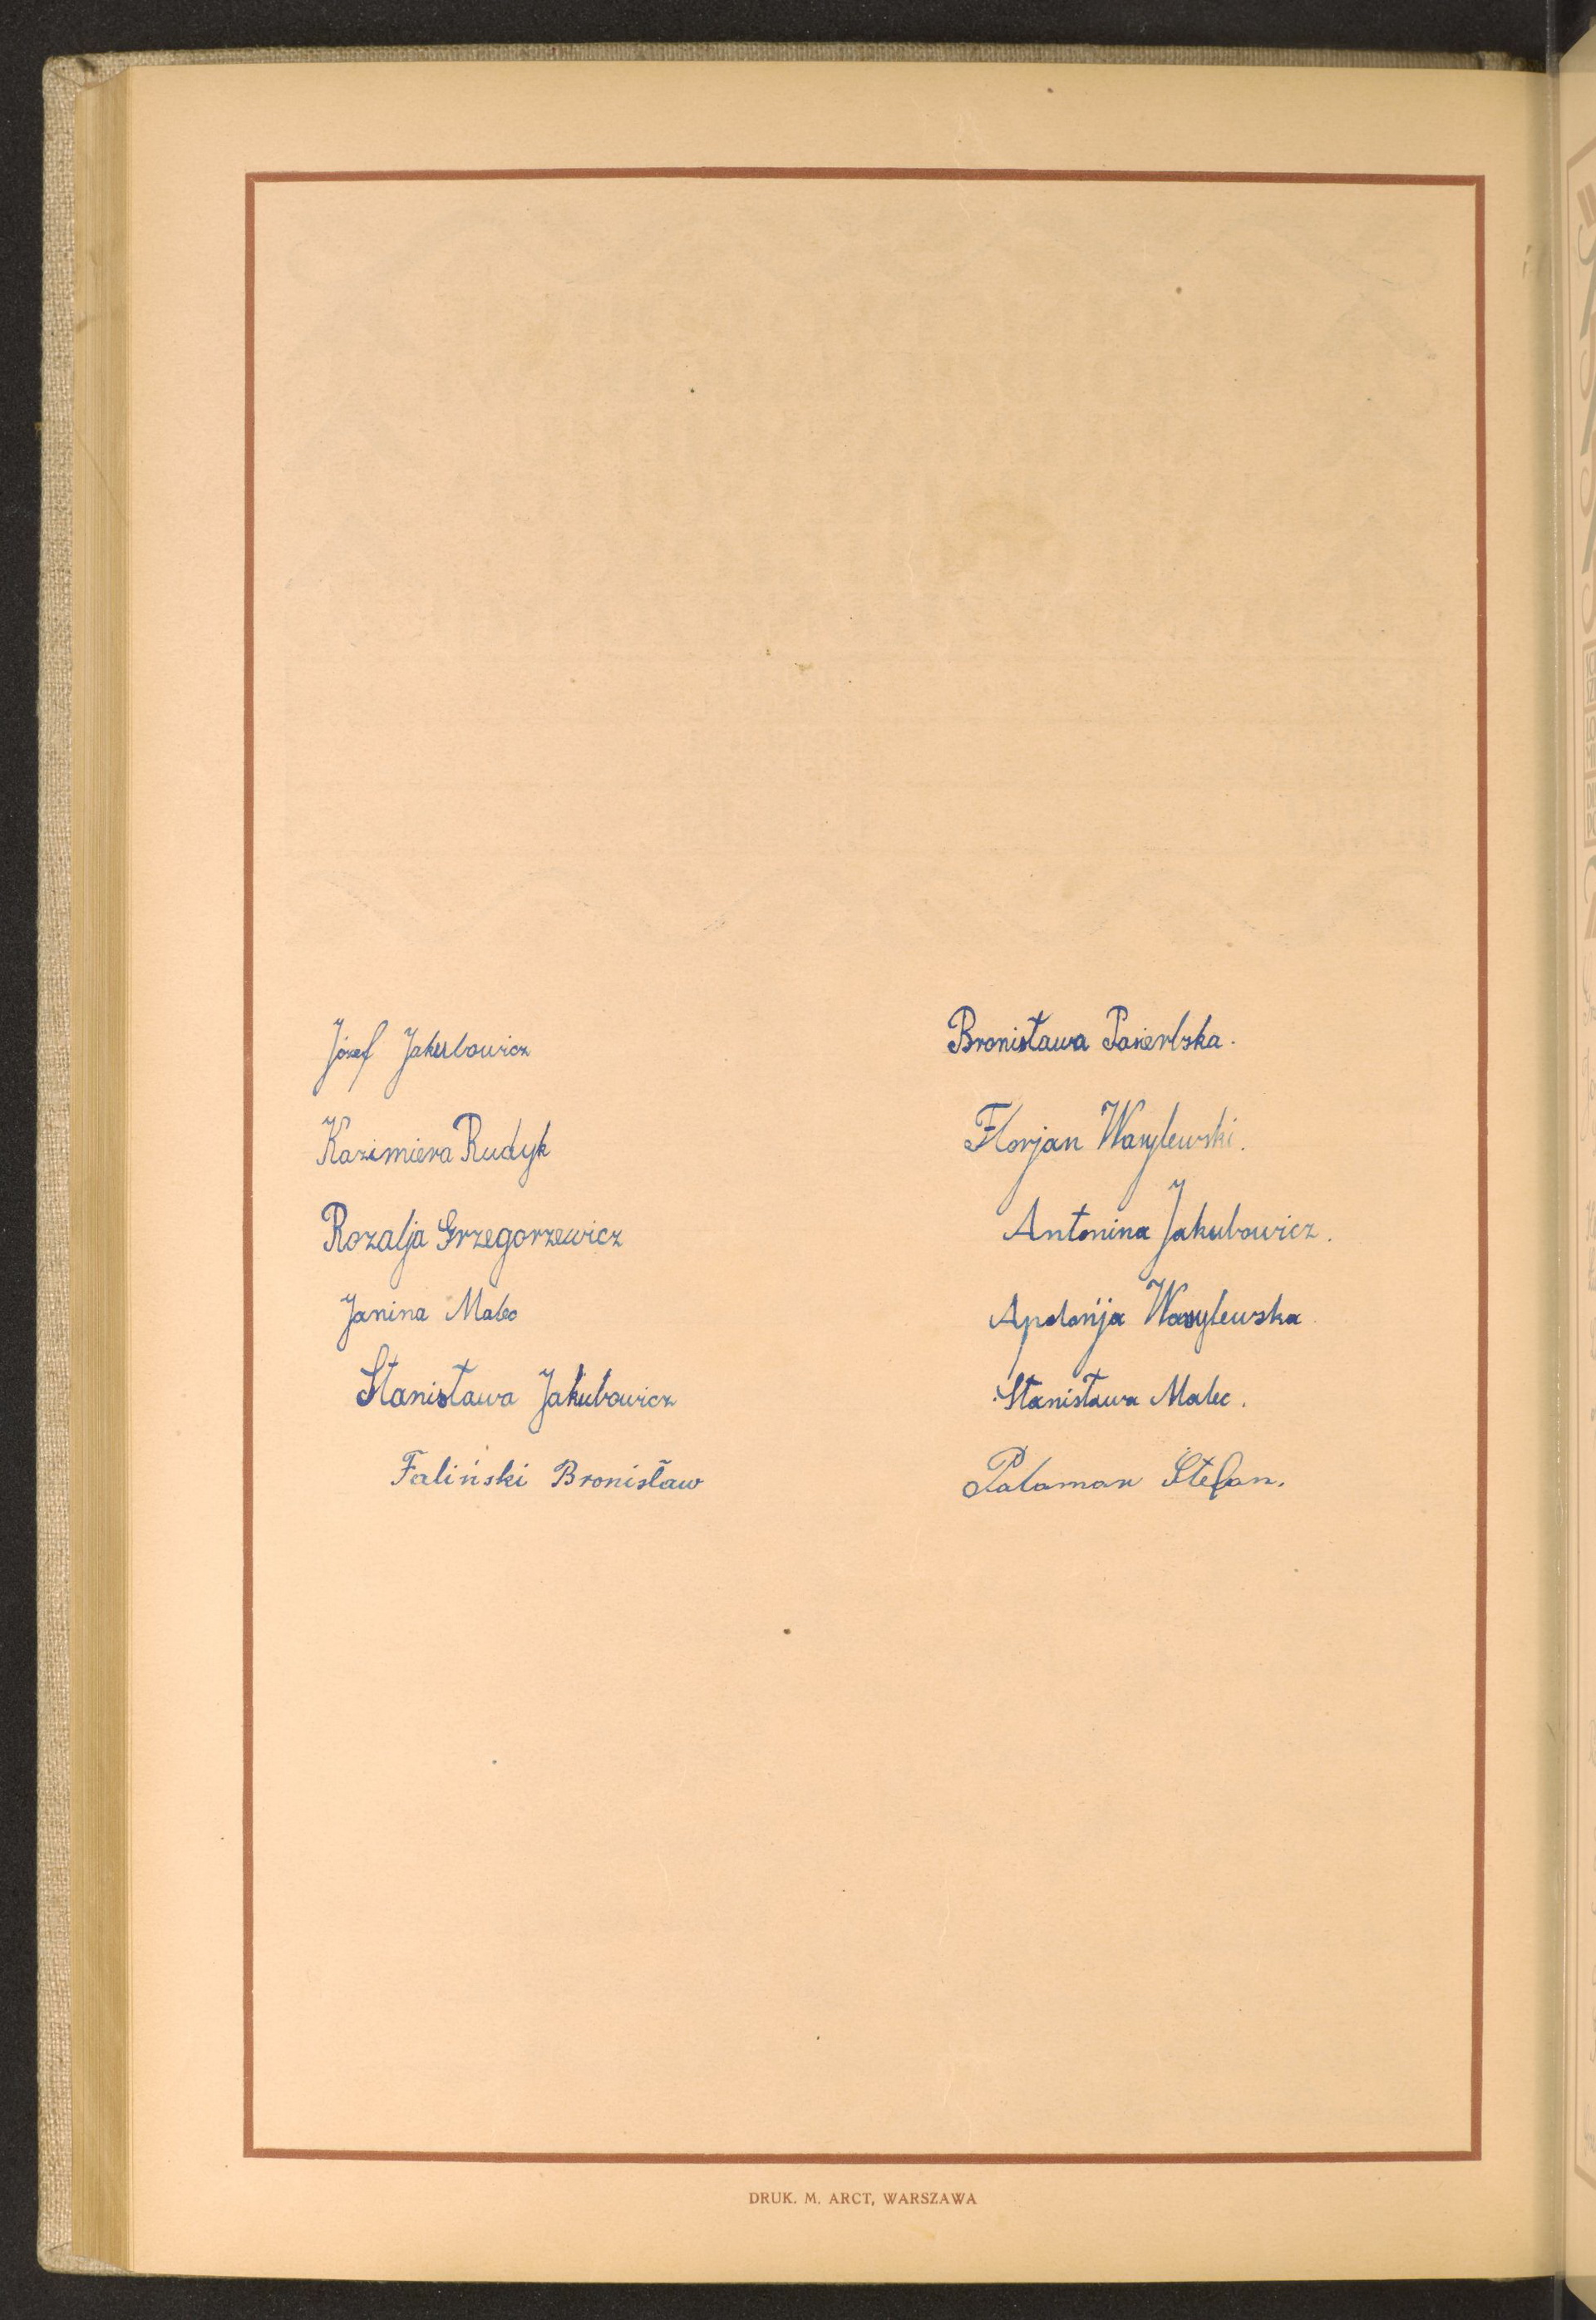 Józef Jakubowicz
Kazimiera Rudyk
Rozalja Grzegorzewicz
Janina Malec
Stanisława Jakubowicz
Faliński Bronisław
Bronisława
Florjan Wasylewski.
Antonina Jakubowicz.
Apolonja Wasylewska
Stanisława Malec.
Stefan.
DRUK. M. ARCT, WARSZAWA